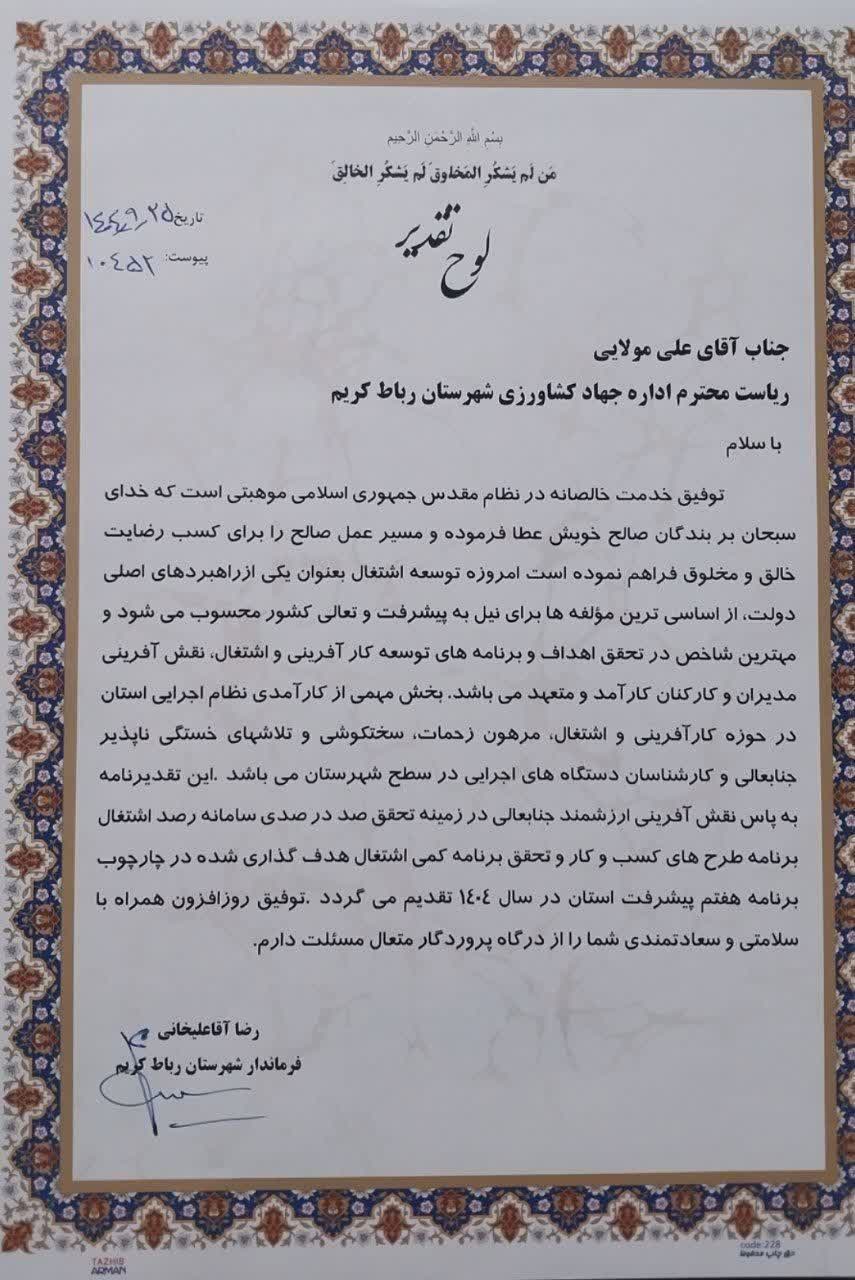 بِسْمِ اللَّهِ الرَّحْمَنِ الرَّحِيمِ
مَن لَم يَشكُرِ المَخلوقَ لَم يَشكُرِ الخالِقَ
تاریخ ۱۴۰۴/۹/۲۵
پیوست: ۱۰۴۵۲
لوح تقدیر
جناب آقای علی مولایی
ریاست محترم اداره جهاد کشاورزی شهرستان رباط کریم
با سلام
توفیق خدمت خالصانه در نظام مقدس جمهوری اسلامی موهبتی است که خدای
سبحان بر بندگان صالح خویش عطا فرموده و مسیر عمل صالح را برای کسب رضایت
خالق و مخلوق فراهم نموده است امروزه توسعه اشتغال بعنوان یکی ازراهبردهای اصلی
دولت، از اساسی ترین مؤلفه ها برای نیل به پیشرفت و تعالی کشور محسوب می شود و
مهترین شاخص در تحقق اهداف و برنامه های توسعه کار آفرینی و اشتغال، نقش آفرینی
مدیران و کارکنان کارآمد و متعهد می باشد. بخش مهمی از کارآمدی نظام اجرایی استان
در حوزه کارآفرینی و اشتغال، مرهون زحمات، سختکوشی و تلاشهای خستگی ناپذیر
جنابعالی و کارشناسان دستگاه های اجرایی در سطح شهرستان می باشد .این تقدیرنامه
به پاس نقش آفرینی ارزشمند جنابعالی در زمینه تحقق صد در صدی سامانه رصد اشتغال
برنامه طرح های کسب و کار و تحقق برنامه کمی اشتغال هدف گذاری شده در چارچوب
برنامه هفتم پیشرفت استان در سال ۱٤۰٤ تقدیم می گردد .توفیق روزافزون همراه با
سلامتی و سعادتمندی شما را از درگاه پروردگار متعال مسئلت دارم.
رضا آقاعلیخانی
فرماندار شهرستان رباط کریم
TAZHIB
ARMAN
code:228
حق چاپ محفوظ